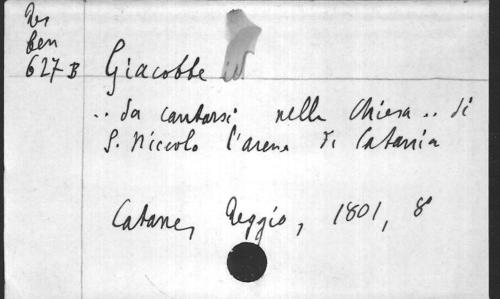 Res
Ben
627 B
Giacobbe in
.. da cantarsi nella Chiesa .. di
S. Niccolo l'arena di Catania
Catane, Reggio, 1801, 8°